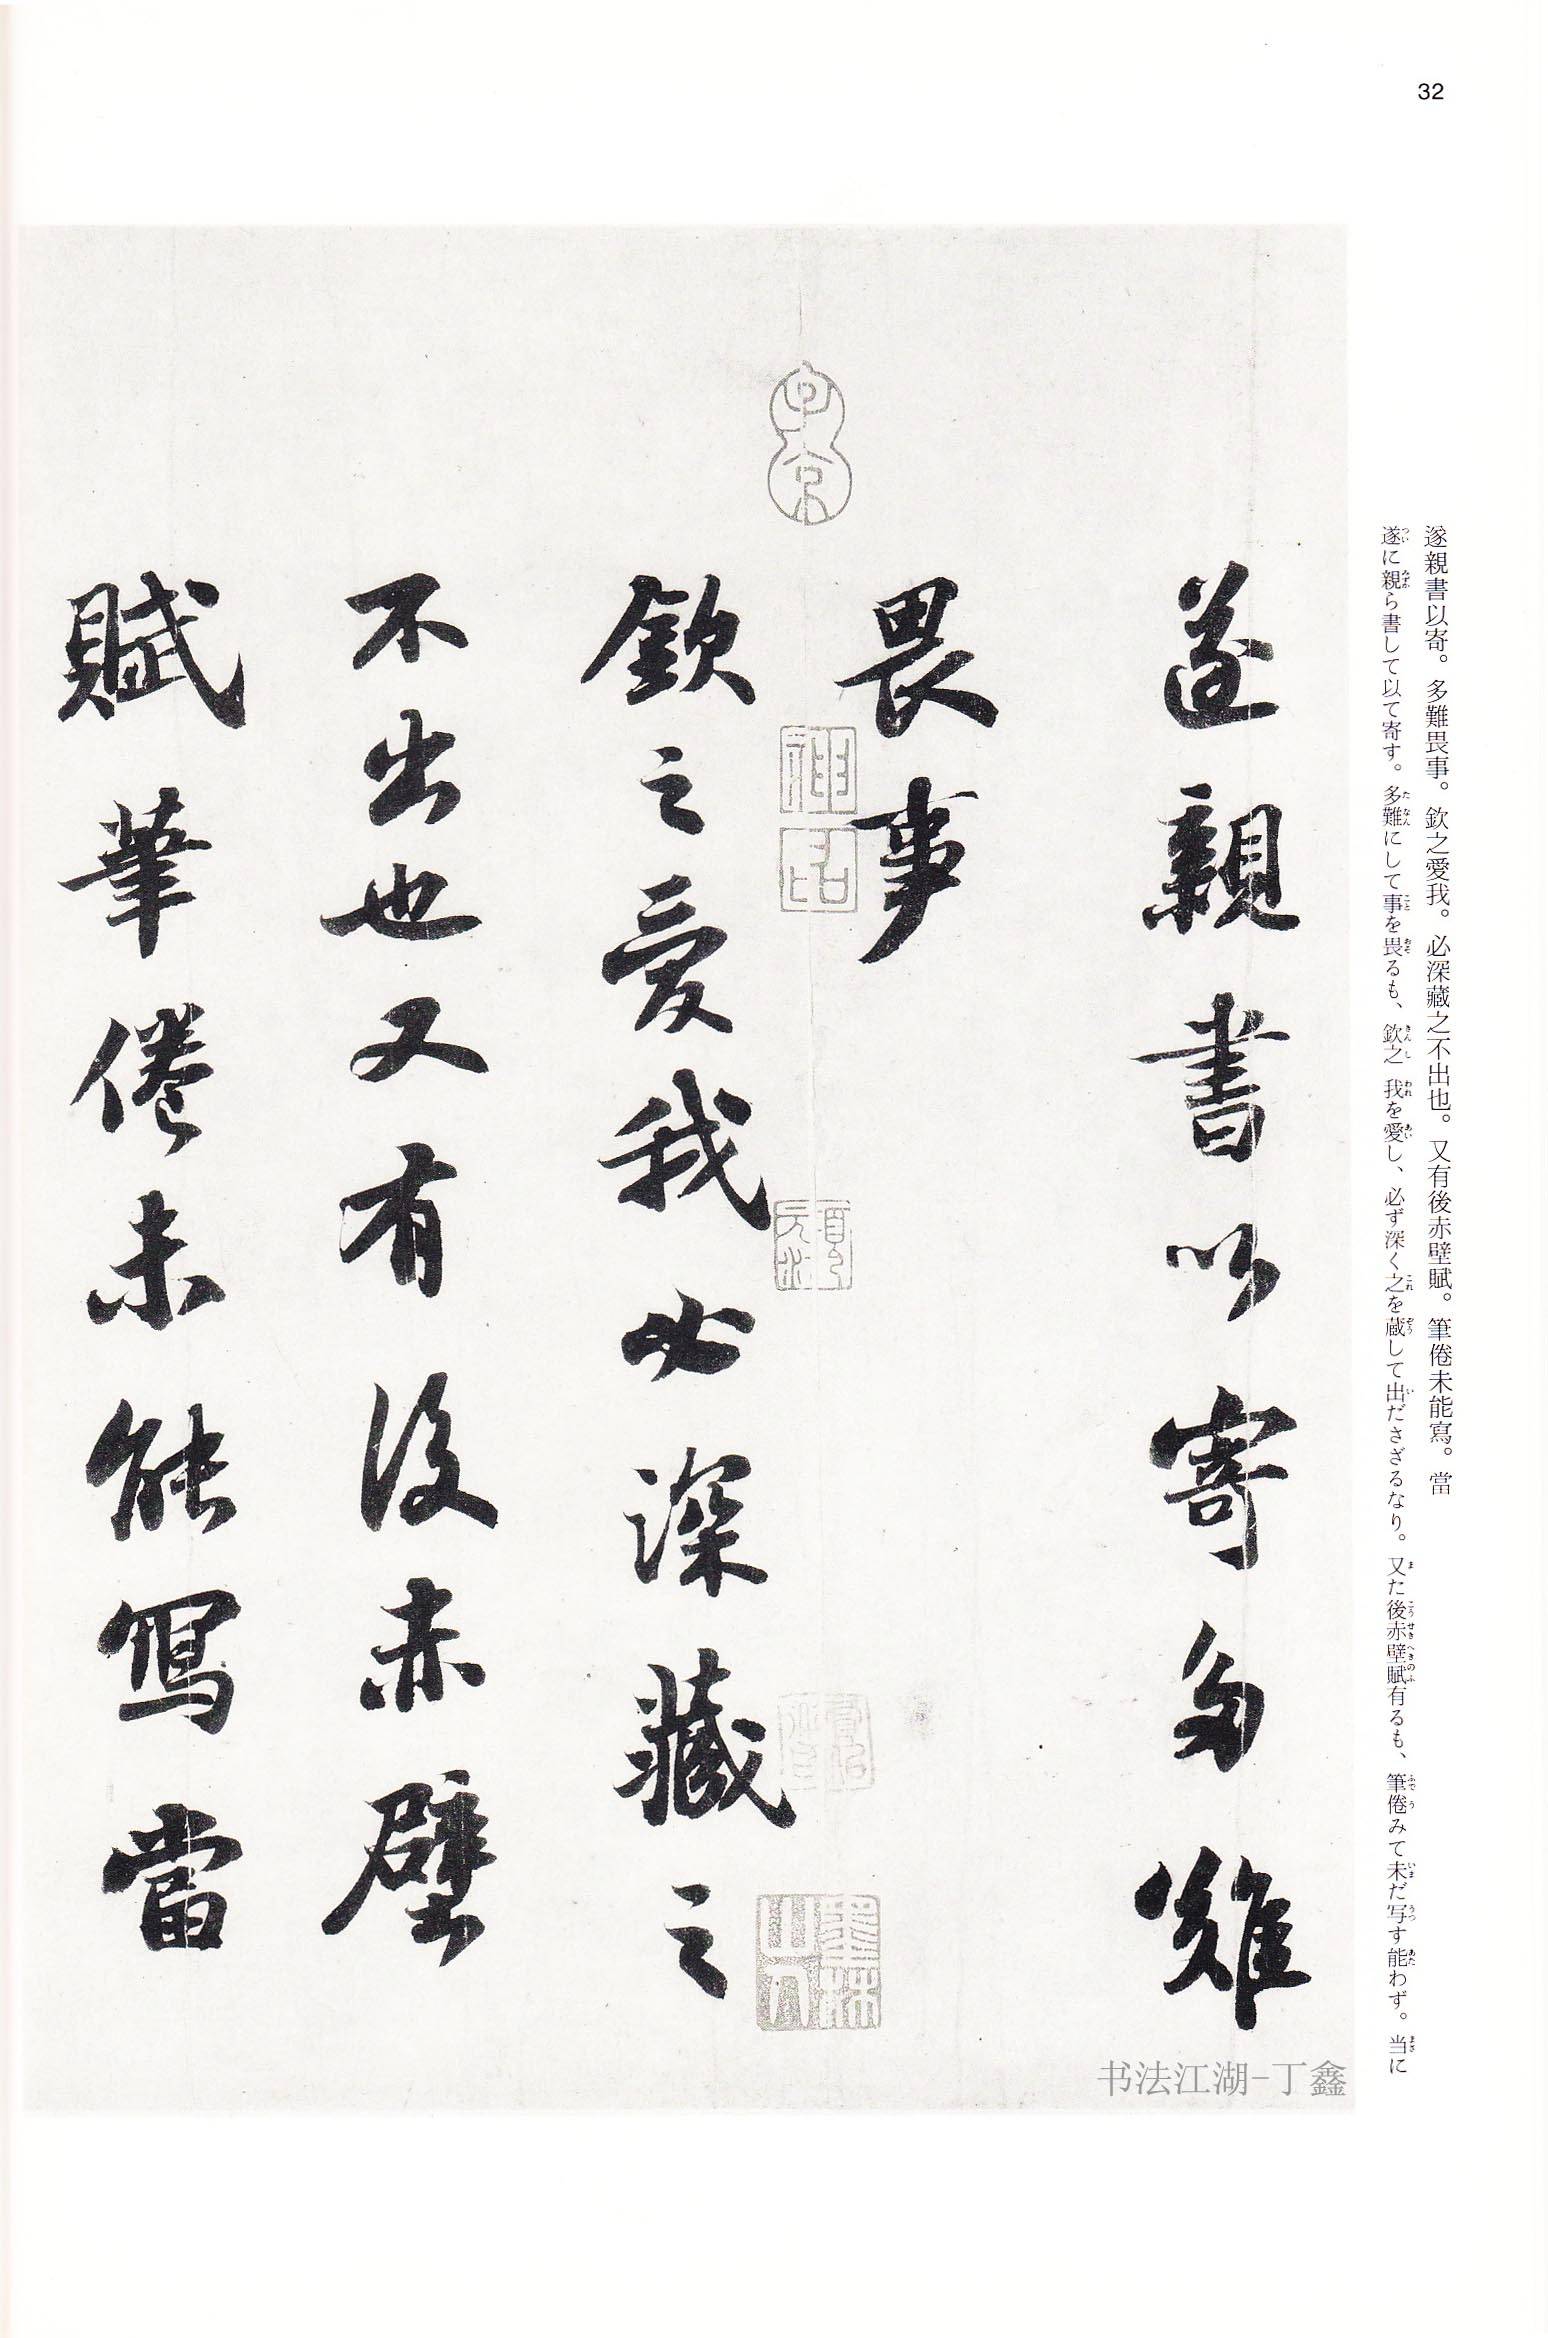 32
遂親書以寄。多難畏事。欽之愛我。必深藏之不出也。又有後赤壁賦。筆倦未能寫。當
遂に親ら書して以て寄す。多難にして事を畏るも、欽之 我を愛し、必ず深く之を蔵して出ださざるなり。又た後赤壁賦有るも、筆倦みて未だ写す能わず。当に
遂親書以寄多難
畏事
欽之愛我必深藏之
不出也又有後赤壁
賦筆倦未能寫當
子京
神品
項元汴
墨林山人
书法江湖-丁鑫